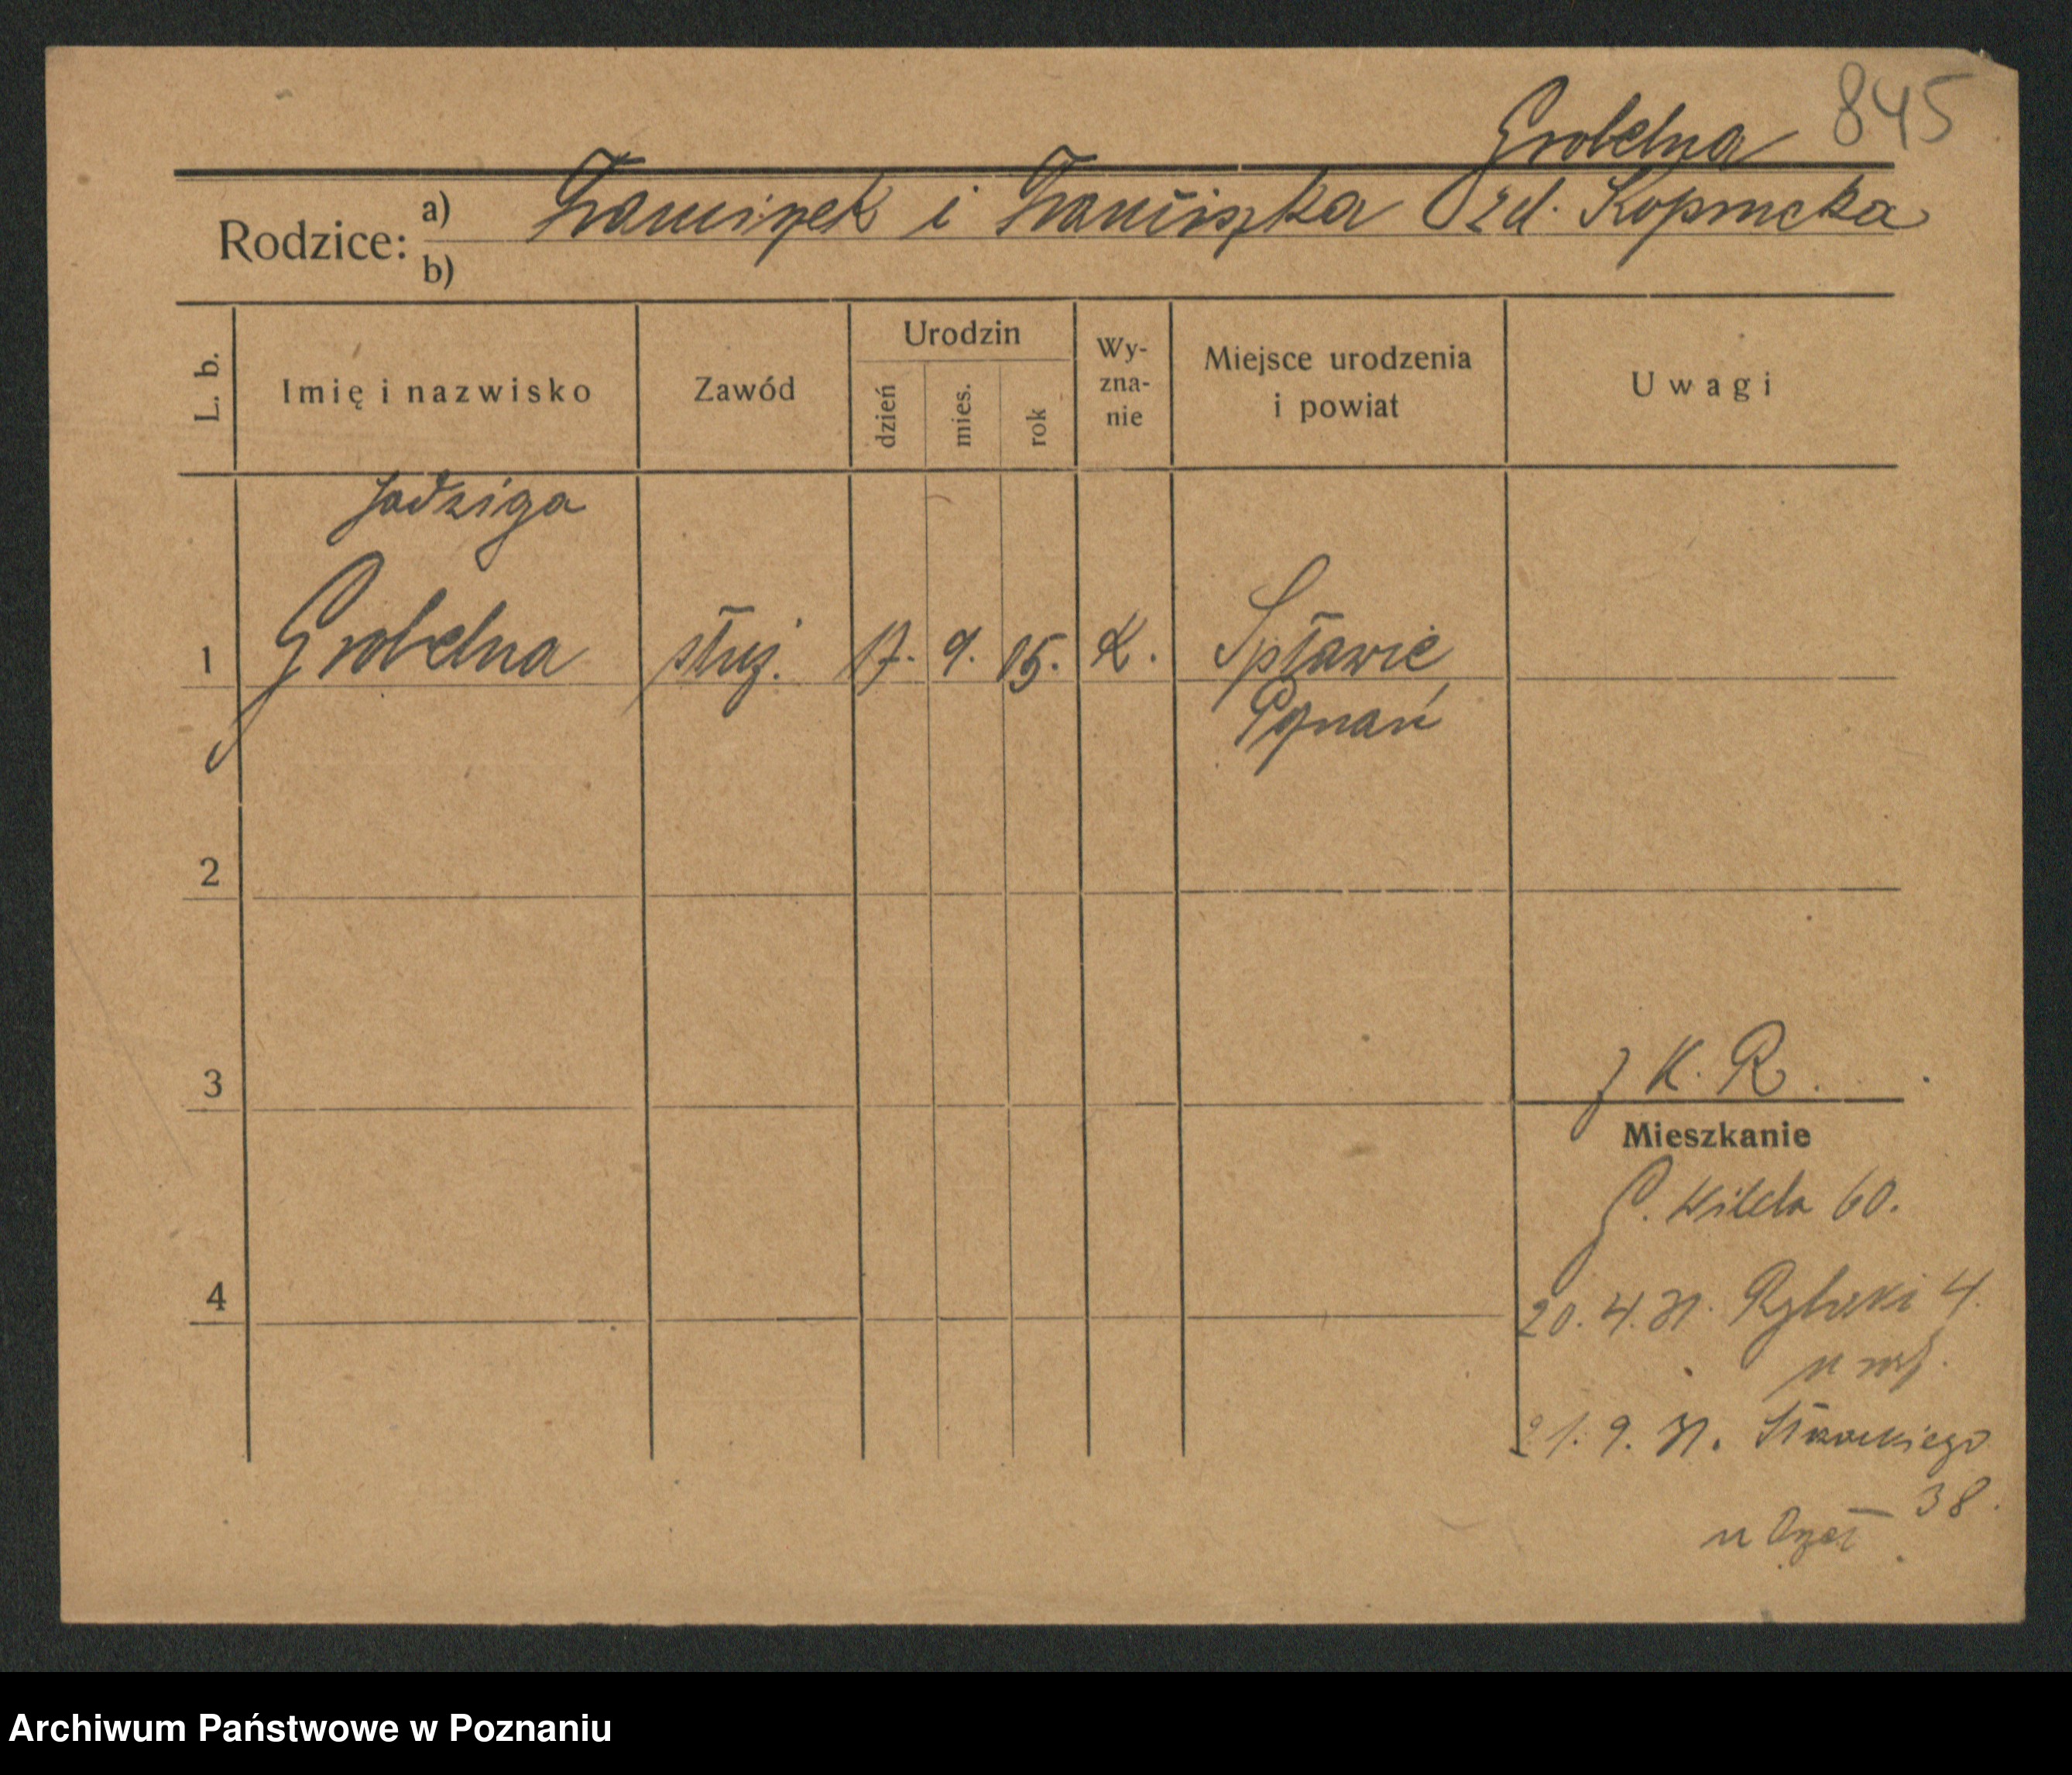 Grobelna 845
Rodzice: a) Franciszek i Franciszka zd.
b)
L. b.
Imię i nazwisko
Zawód
Urodzin
dzień
mies.
rok
Wy-
zna-
nie
Miejsce urodzenia
i powiat
Uwagi
Jadziga
1 Grobelna służ. 17. 9. 15. K. Spławie
Poznań
2
3
K. R.
Mieszkanie
G. Wilda 60.
4
20. 4. 31. Rybaki 4.
21. 9. 31.
38.
u
Archiwum Państwowe w Poznaniu